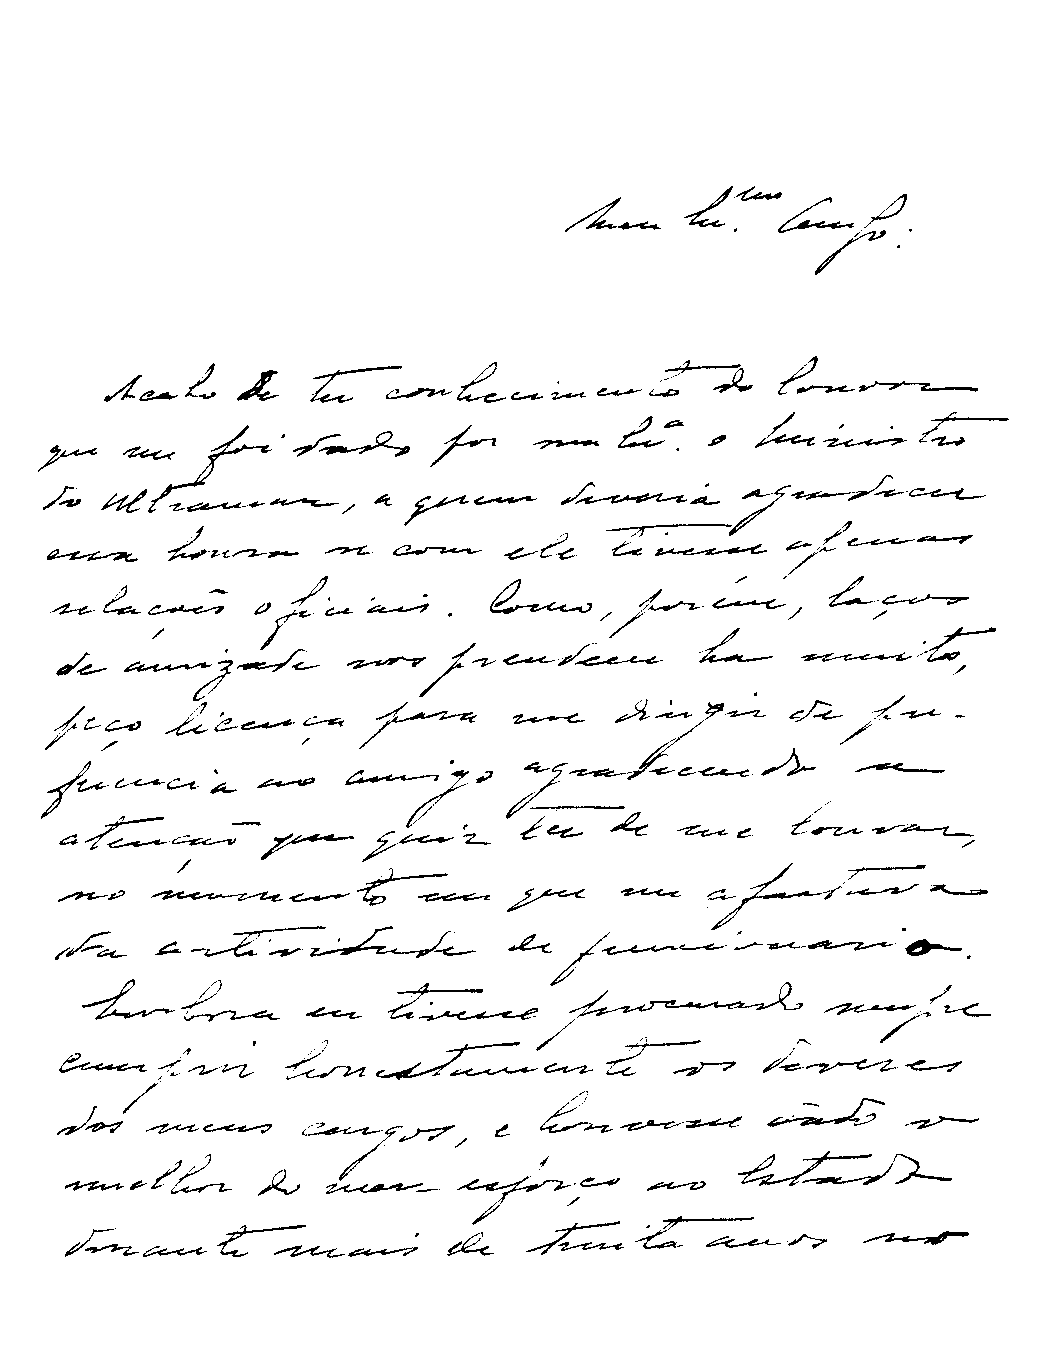 Meu Am.
Acabo de ter conhecimento do louvor
que me foi dado por o Ministro
do Ultramar, a quem deveria agradecer
essa honra se com ele tivesse apenas
relações oficiais. Como, porém, laços
de amizade nos prendem ha muito,
peço licença para me dirigir de pre-
ferencia ao amigo agradecendo a
atenção que quiz ter de me louvar,
no momento em que me afastava
da actividade de funcionario.
Embora eu tivesse procurado sempre
cumprir honestamente os deveres
dos meus cargos, e houvesse dado o
melhor do meu esforço ao Estado
durante mais de trinta anos no